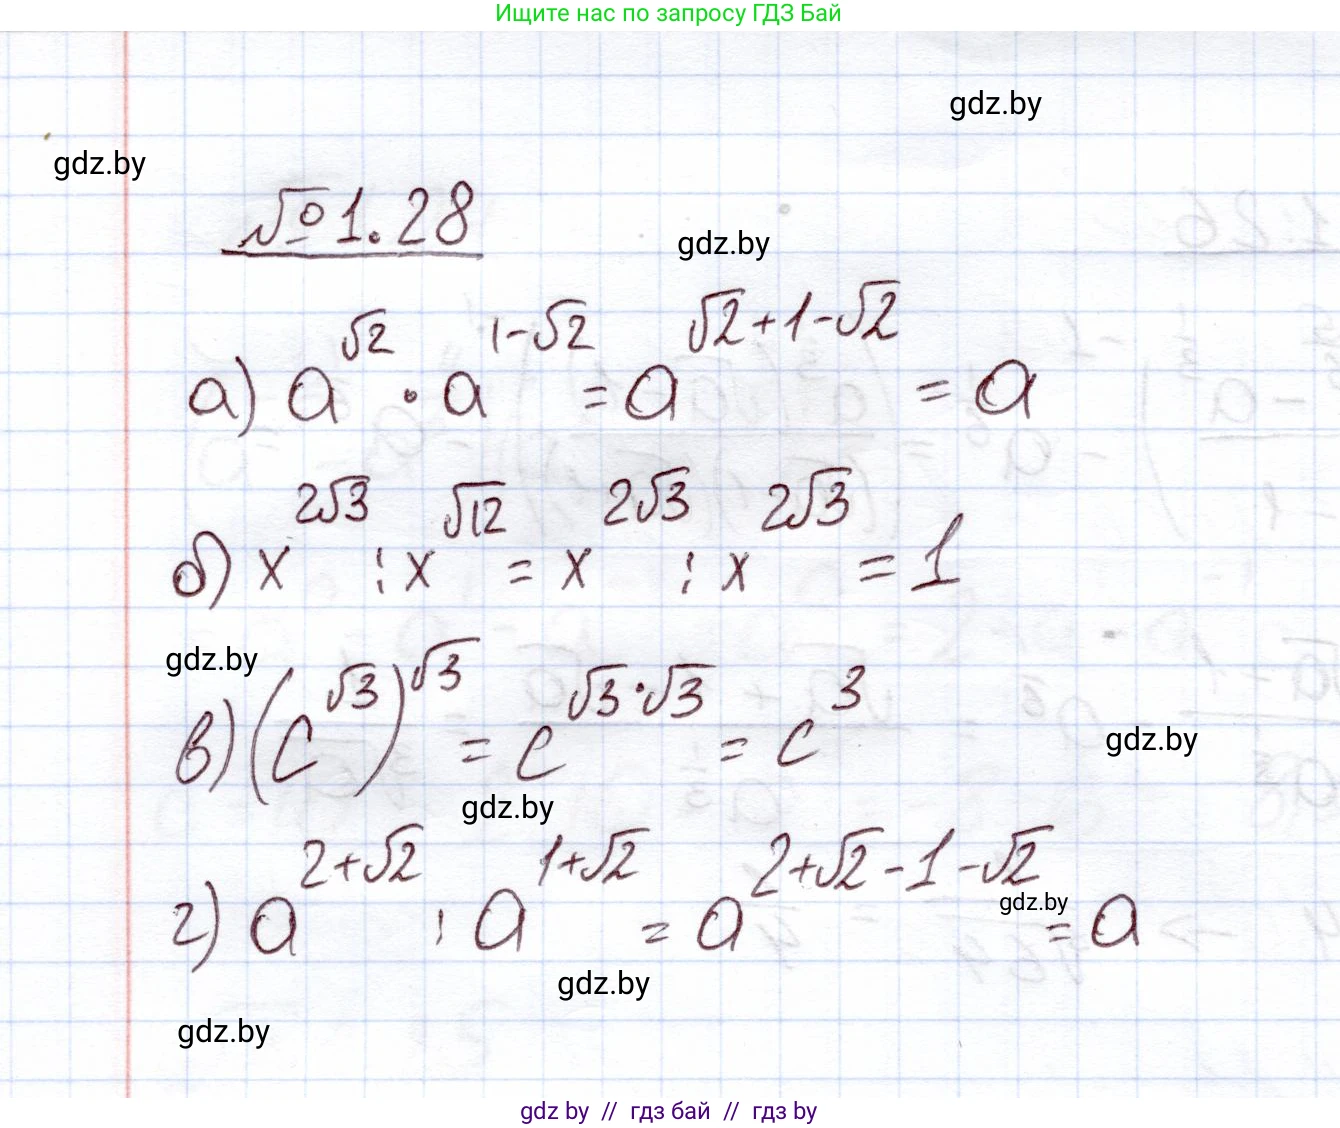 Ищите нас по запросу ГДЗ Бай
gdz.by
gdz.by
№1.28
gdz.by
а) a^{√2} · a^{1-√2} = a^{√2+1-√2} = a
б) x^{2√3} : x^{√12} = x^{2√3} : x^{2√3} = 1
gdz.by
в) (c^{√3})^{√3} = c^{√3·√3} = c^3
gdz.by
gdz.by
г) a^{2+√2} : a^{1+√2} = a^{2+√2-1-√2} = a
gdz.by
gdz.by
gdz.by
gdz by // гдз бай // гдз by